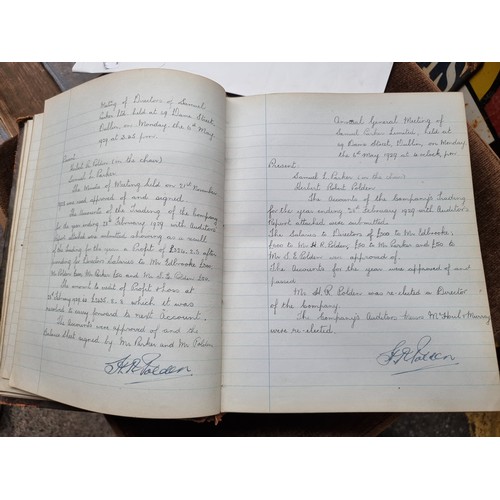 Meeting of Directors of Samuel
Parker Ltd. held at 29 Dame Street,
Dublin, on Monday, the 6th May,
1929 at 2.45. p.m.
Present
Robert Polden (in the chair)
Samuel L. Parker.
The Minutes of Meeting held on 21st November
1928 were approved of and signed.
The Accounts of the Trading of the Company
for the year ending 28th February 1929 with Auditors
Report were submitted showing as a result
of the trading for the year a Profit of
providing for Directors Salaries to Mr Edbrooke £200,
Mr Polden £200 Mr Parker £50 and Mr S. E. Polden £50.
The amount to credit of Profit & Loss at
28th February 1929 as £658. 2. 2 which it was
resolved to carry forward to next Account.
The Accounts were approved of and the
Balance Sheet signed by Mr Parker and Mr Polden
H R Polden
Annual General Meeting of
Samuel Parker Limited, held at
29 Dame Street, Dublin, on Monday
the 6th May 1929 at 3 o'clock, p.m.
Present
Samuel L. Parker (in the chair)
Herbert Robert Polden.
The Accounts of the Company's Trading
for the year ending 28th February 1929 with Auditors
Report attached were submitted.
The Salaries to Directors of £200 to Mr Edbrooke,
£200 to Mr H. R. Polden, £50 to Mr Parker and £50 to
Mr S. E. Polden was approved of.
The Accounts for the year were approved of and
passed.
Mr H. R Polden was re-elected a Director
of the Company.
The Company's Auditors Messrs & Murray
were re-elected.
H R Polden